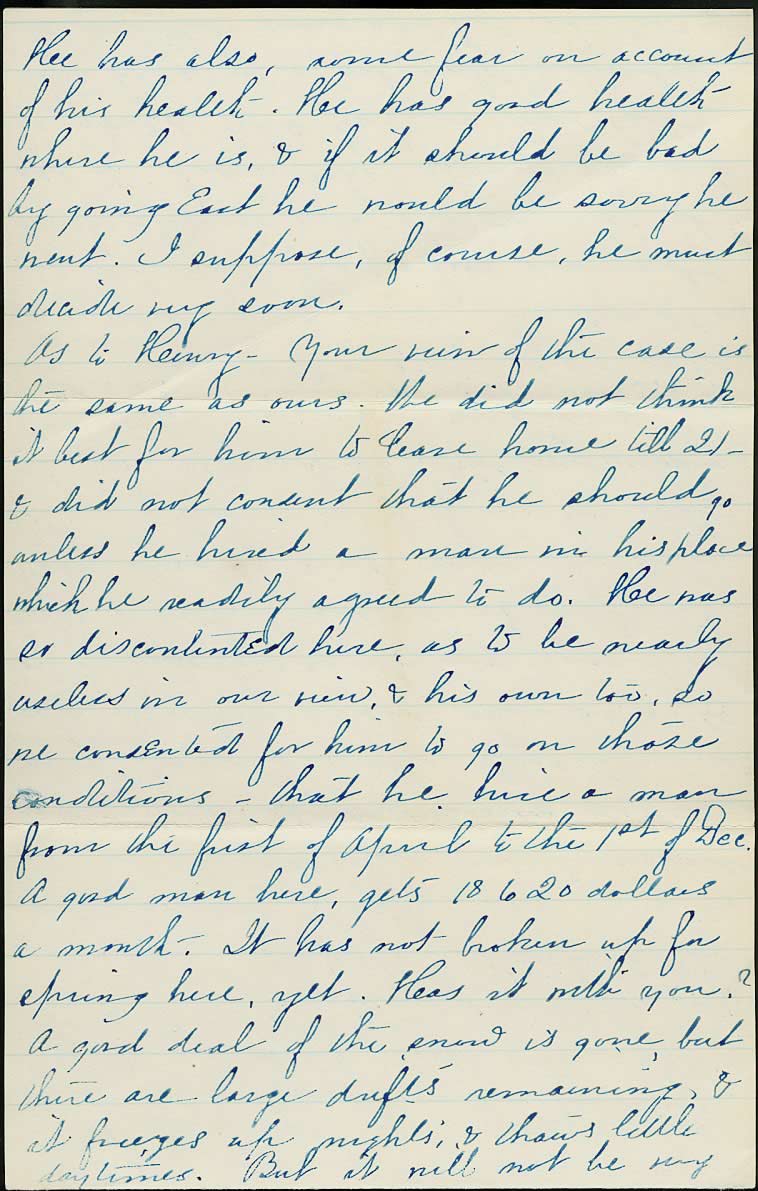 He has also, some fear on account
of his health. He has good health
where he is, & if it should be bad
by going East he would be sorry he
went. I suppose, of course, he must
decide very soon.
As to Henry - Your view of the case is
the same as ours. We did not think
it best for him to leave home till 21 -
& did not consent that he should go
unless he hired a man in his place
which he readily agreed to do. He was
so discontented here, as to be nearly
useless in our view, & his own too, so
we consented for him to go on those
conditions - that he hire a man
from the first of April to the 1st of Dec.
A good man here, gets 18 to 20 dollars
a month. It has not broken up for
spring here, yet. Has it with you?
A good deal of the snow is gone, but
there are large drifts remaining, &
it freezes up nights, & thaws little
daytimes. But it will not be very